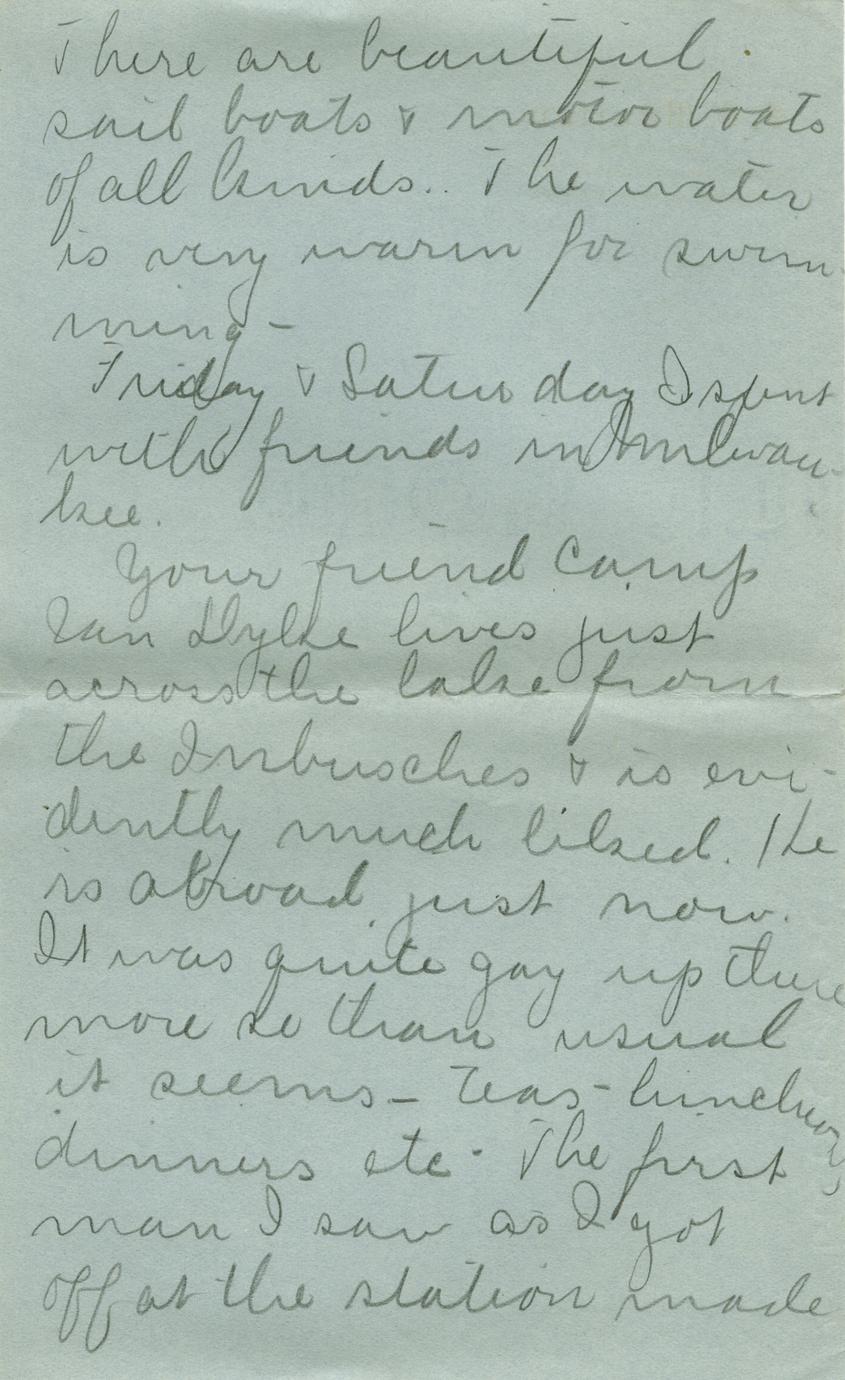 There are beautiful
sail boats & motor boats
of all kinds.. The water
is very warm for swim-
ming -
Friday & Saturday I spent
with friends in Milwau-
kee.
Your friend Camp
Van Dyke lives just
across the lake from
the Inbusches & is evi-
dently much liked. He
is abroad just now.
It was quite gay up there
more so than usual
it seems - Teas - luncheons
dinners etc. The first
man I saw as I got
off at the station made